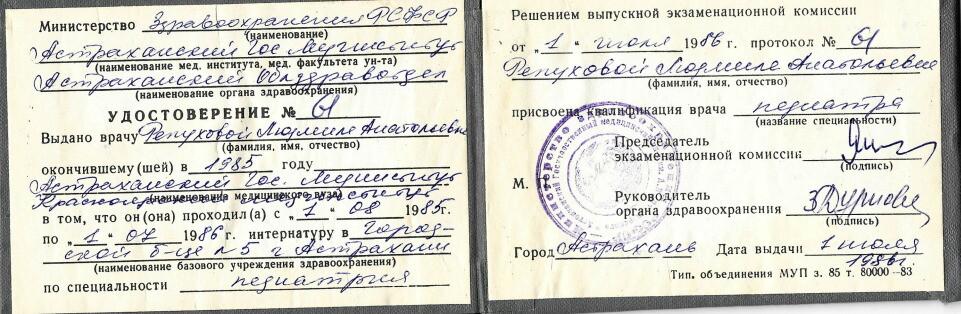 Министерство Здравоохранения РСФСР
(наименование)
Астраханский Гос. Мединститут
(наименование мед. института, мед. факультета ун-та)
Астраханский Облздравотдел
(наименование органа здравоохранения)
УДОСТОВЕРЕНИЕ № 61
Выдано врачу Репуховой Людмиле Анатольевне
(фамилия, имя, отчество)
окончившему (шей) в 1985 году
Астраханский Гос. Мединститут
(наименование медицинского вуза)
в том, что он (она) проходил(а) с „1" 08 1985г.
по „1" 07 1986 г. интернатуру в Город-
ской б-це №5 г Астрахани
(наименование базового учреждения здравоохранения)
по специальности педиатрия
Решением выпускной экзаменационной комиссии
от „1" июля 1986 г. протокол № 61
Репуховой Людмиле Анатольевне
(фамилия, имя, отчество)
присвоена квалификация врача педиатра
(название специальности)
Председатель
экзаменационной комиссии
(подпись)
М.
Руководитель
органа здравоохранения
(подпись)
Город Астрахань Дата выдачи 1 июля
1986г.
Тип. объединения МУП з. 85 т. 80000—83